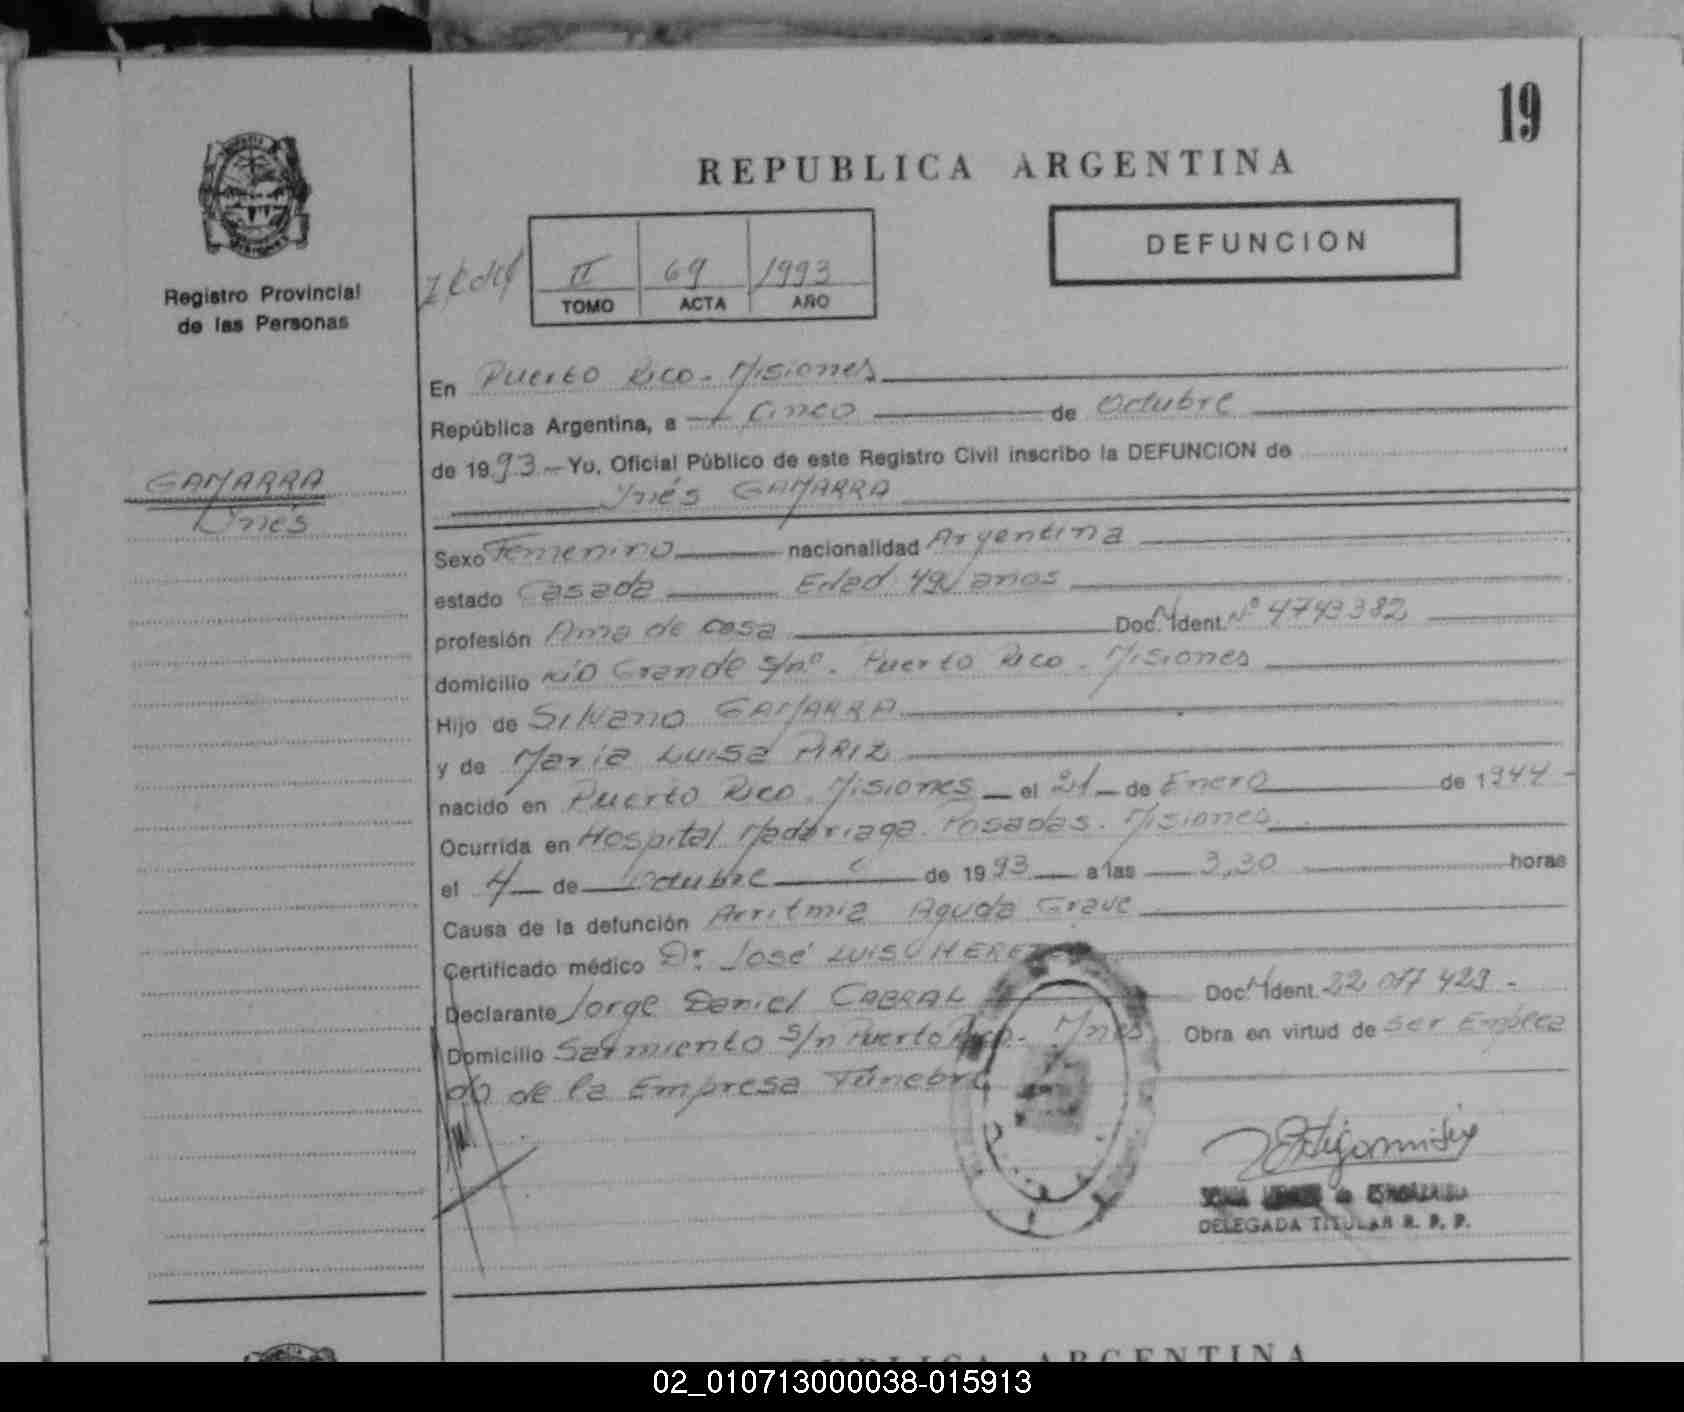 19
REPUBLICA ARGENTINA
DEFUNCION
Registro Provincial
de las Personas
II 69 1993
TOMO ACTA AÑO
En Puerto Rico - Misiones
República Argentina, a Cinco de Octubre
de 1993 - Yo, Oficial Público de este Registro Civil inscribo la DEFUNCION de
GAMARRA
Inés
Inés GAMARRA
Sexo Femenino nacionalidad Argentina
estado Casada Edad 49 años
profesión Ama de casa Doc. M Ident. Nº 4743382
domicilio Río Grande s/nº. Puerto Rico. Misiones
Hijo de Silvano GAMARRA
y de María Luisa PIRIZ
nacido en Puerto Rico. Misiones el 21 de Enero de 1944 -
Ocurrida en Hospital Madariaga. Posadas. Misiones
el 4 de octubre de 1993 a las 3,30 horas
Causa de la defunción Arritmia Aguda Grave
Certificado médico Dr. José Luis
Declarante Jorge Daniel CABRAL Doc. M Ident. 22 017 429 -
Domicilio Sarmiento s/n Puerto Rico - Mnes Obra en virtud de Ser Emplea
do de la Empresa Fúnebre
DELEGADA TITULAR R. P. P.
REPUBLICA ARGENTINA
02_010713000038-015913